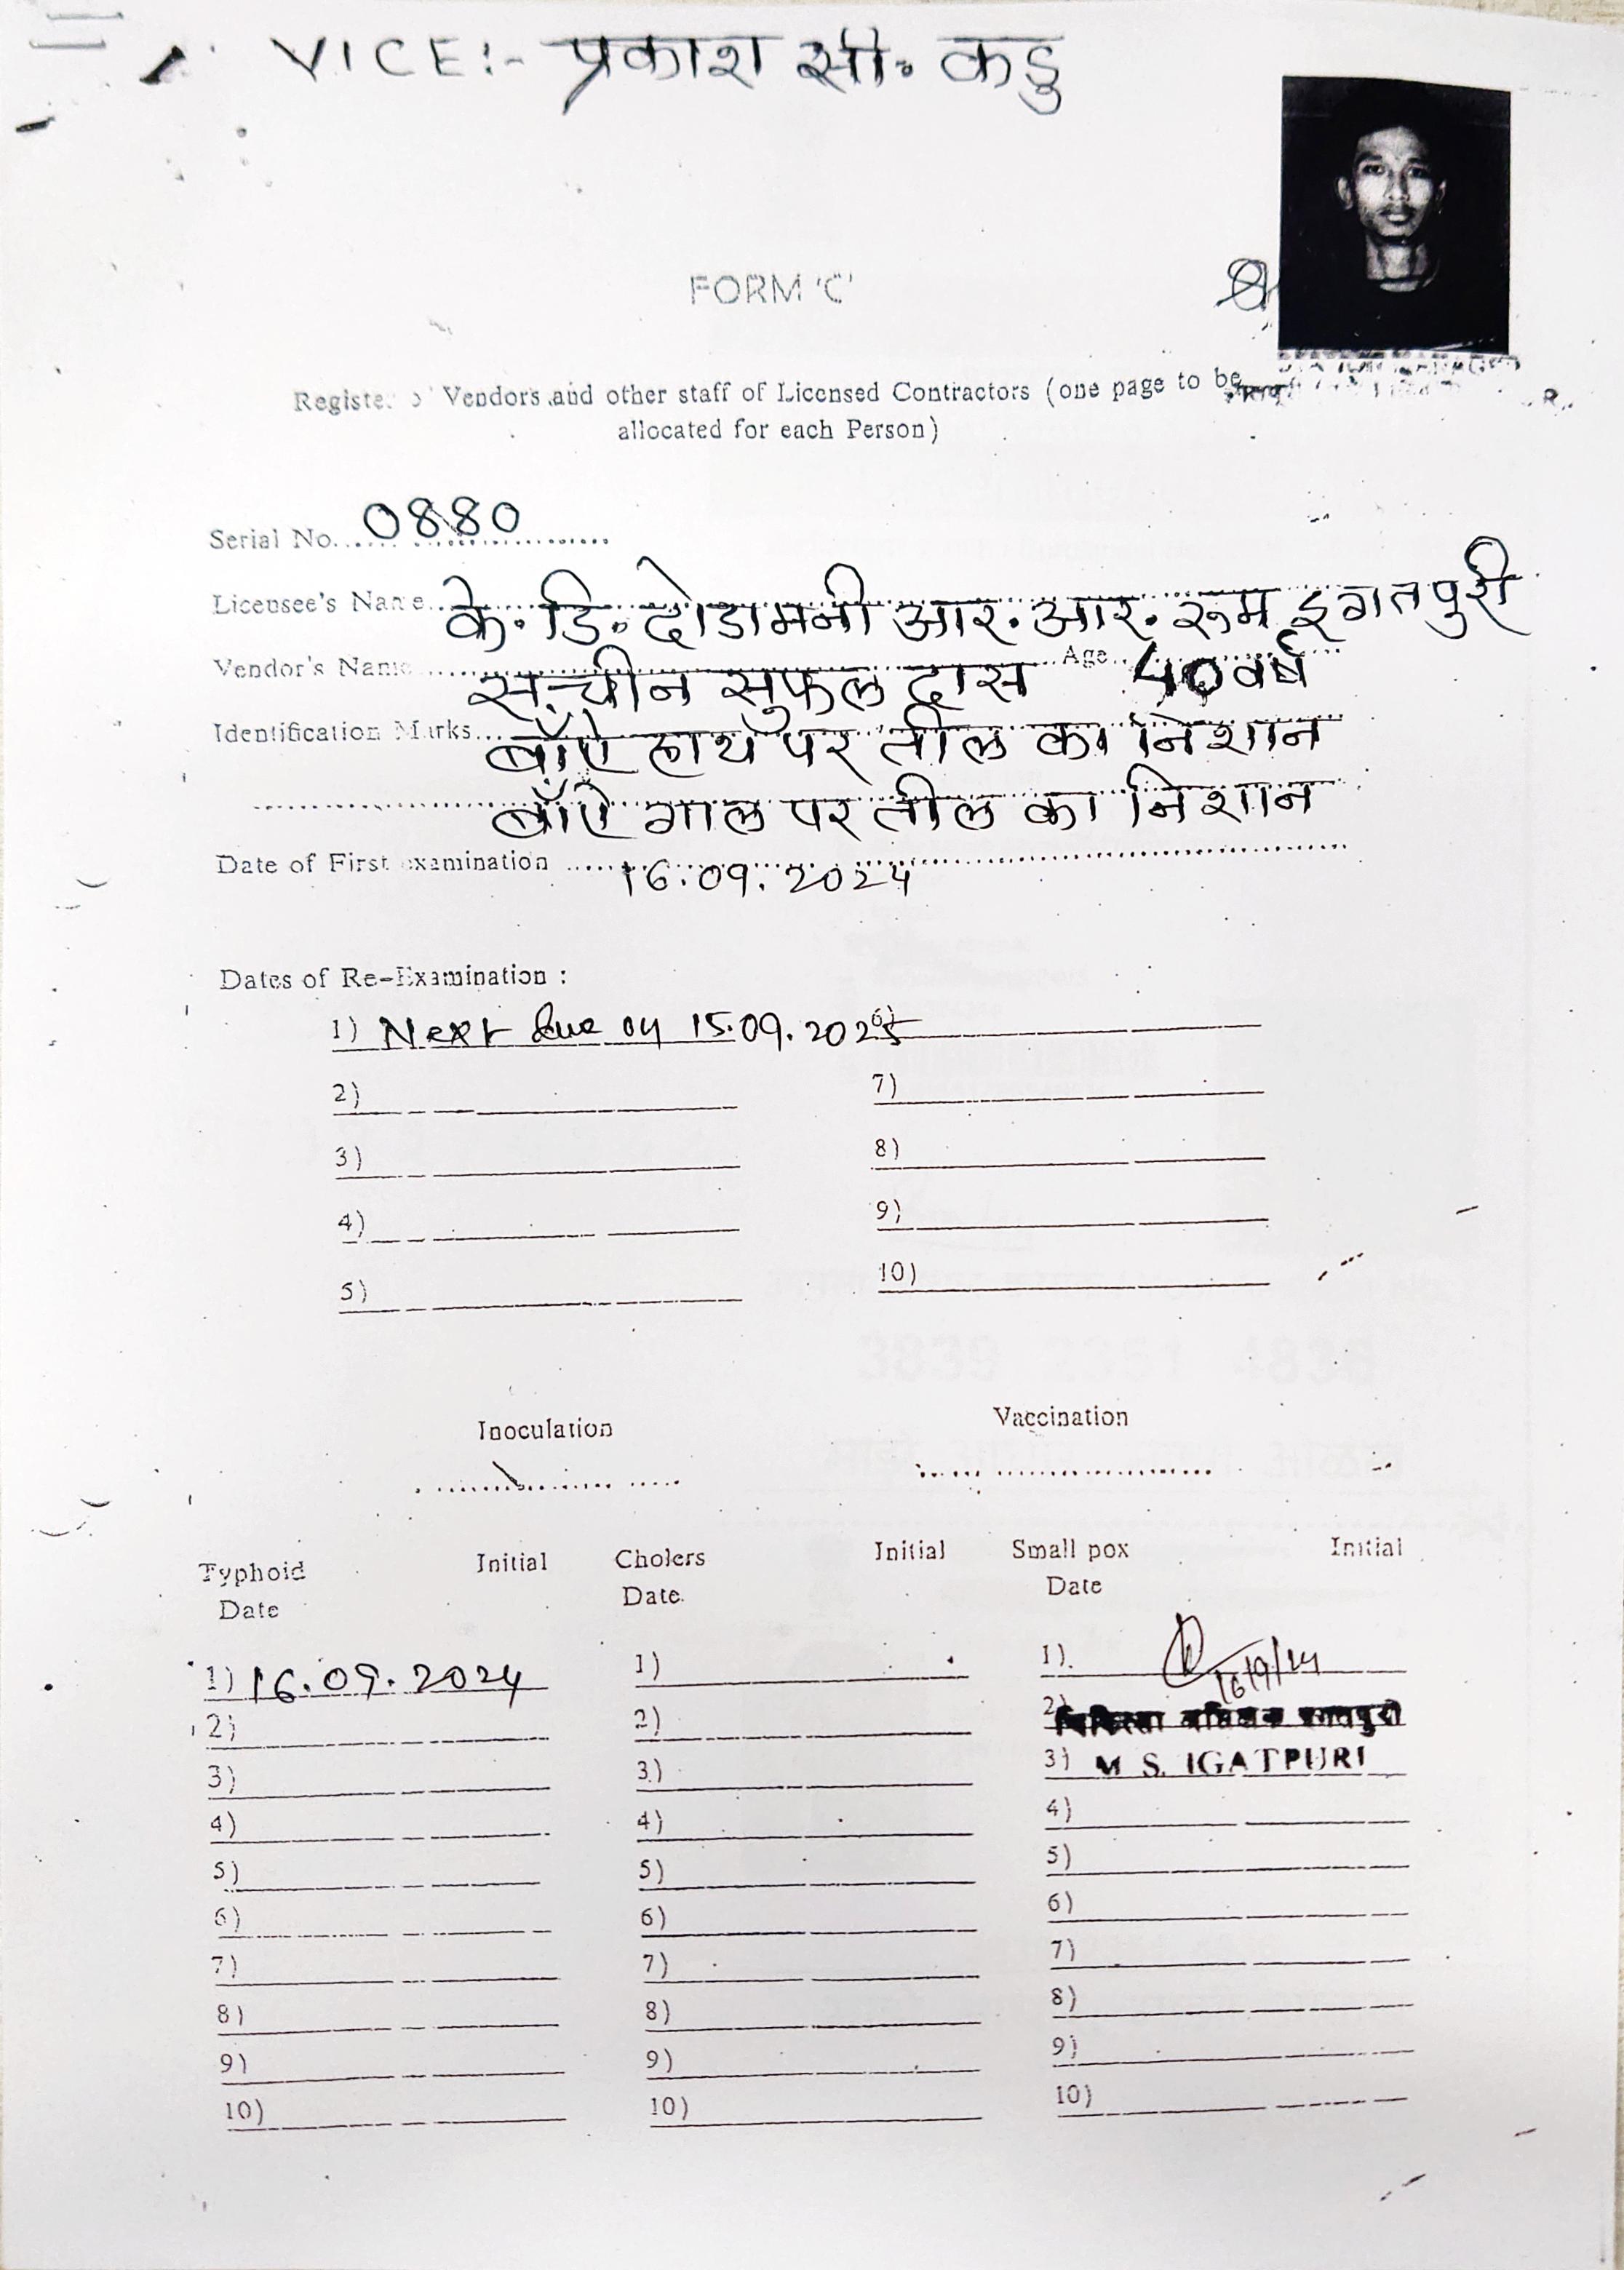 VICE:- प्रकाश सी. कडु
FORM 'C'
Register of Vendors and other staff of Licensed Contractors (one page to be
allocated for each Person)
Serial No. 0880
Licensee's Name के. डि. दोडामनी आर. आर. रूम इगतपुरी
Vendor's Name सचीन सुफल दास Age 40 वर्ष
Identification Marks बाँऐ हाथ पर तील का निशान
बाँऐ गाल पर तील का निशान
Date of First examination 16.09.2024
Dates of Re-Examination :
1) Next due on 15.09.2025 6)
2) 7)
3) 8)
4) 9)
5) 10)
Inoculation Vaccination
Typhoid Initial Cholers Initial Small pox Initial
Date Date Date
1) 16.09.2024 1) 1) 16/9/24
2) 2) 2)
3) 3) 3) M S. IGATPURI
4) 4) 4)
5) 5) 5)
6) 6) 6)
7) 7) 7)
8) 8) 8)
9) 9) 9)
10) 10) 10)